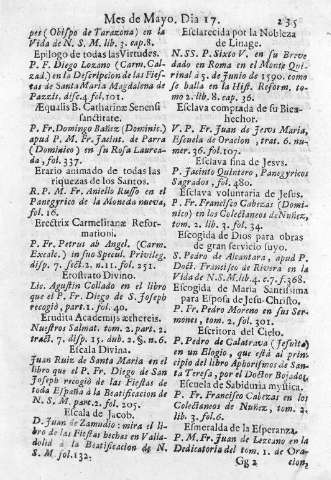 Mes de Mayo. Dia 17. 235
per (Obispo de Tarazona) en la
Vida de N. S. M. lib. 3. cap. 8.
Epilogo de todas las Virtudes.
P. F. Diego Lozano (Carm. Cal-
zad.) en la Descripcion de las Fies-
tas de Santa Maria Magdalena de
Pazzis. disc. 4. fol. 101.
Æqualis B. Catharinæ Senensi
sanctitate.
P. Fr. Domingo Bañez (Dominic.)
apud P. M. Fr. Jacint. de Parra
(Dominico) en su Rosa Laurea-
da, fol. 337.
Erario animado de todas las
riquezas de los Santos.
R. P. M. Fr. Aniello Russo en el
Panegyrico de la Moneda nueva,
fol. 16.
Erectrix Carmelitanæ Refor-
mationi.
P. Fr. Petrus ab Angel. (Carm.
Excalc.) in suo Specul. Privileg.
disp. 7. sect. 2. n. 11. fol. 251.
Erostrato Divino.
Lic. Agustin Collado en el libro
que el P. Fr. Diego de S. Joseph
recogió, part. 1. fol. 40.
Erudita Academijs æthereis.
Nuestros Salmat. tom. 2. part. 2.
tract. 7. disp. 15. dub. 2. §. n. 6.
Escala Divina.
Juan Ruiz de Santa Maria en el
libro que el P. Fr. Diego de San
Joseph recogió de las Fiestas de
toda España à la Beatificacion de
N. S. M. part. 2. fol. 205.
Escala de Jacob.
D. Juan de Zamudio: mira el li-
bro de las Fiestas hechas en Valla-
dolid à la Beatificacion de N.
S. M. fol. 132.
Esclarecida por la Nobleza
de Linage.
N. SS. P. Sixto V. en su Breve
dado en Roma en el Monte Qui-
rinal à 5. de Junio de 1590. como
se halla en la Hist. Reform. to-
mo 2. lib. 8. cap. 36.
Esclava comptada de su Bien-
hechor.
V. P. Fr. Juan de Jesus Maria,
Escuela de Oracion, trat. 6. nu-
mer. 36. fol. 107.
Esclava fina de Jesvs.
P. Jacinto Quintero, Panegyricos
Sagrados, fol. 480.
Esclava voluntaria de Jesus.
P. Fr. Francisco Cabezas (Domi-
nico) en los Colectaneos de Nuñez,
tom. 2. lib. 3. fol. 34.
Escogida de Dios para obras
de gran servicio suyo.
S. Pedro de Alcantara, apud P.
Doct. Francisco de Rivera en la
Vida de N. S. M. lib. 4. c. 7. f. 368.
Escogida de Maria Santissima
para Esposa de Jesu-Christo.
P. Fr. Pedro Moreno en sus Ser-
mones, tom. 2. fol. 301.
Escritora del Cielo.
P. Pedro de Calatrava (Jesuita)
en un Elogio, que està al princi-
pio del libro Aphorismos de San-
ta Teresa, por el Doctor Bojados.
Escuela de Sabiduria mystica.
P. Fr. Francisco Cabezas en los
Colectaneos de Nuñez, tom. 2.
lib. 3. fol. 36.
Esmeralda de la Esperanza.
P. M. Fr. Juan de Lezcano en la
Dedicatoria del tom. 1. de Ora-
Gg 2 cion,